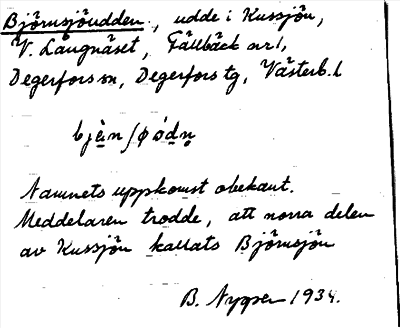 Björnsjöudden, udde i Kussjön,
V. Långnäset, Fällbäck arr.,
Degerfors sn, Degerfors tg, Västerb. l
Namnets uppkomst obekant.
Meddelaren trodde, att norra delen
av Kussjön kallats Björnsjön
B. Nygren 1934.